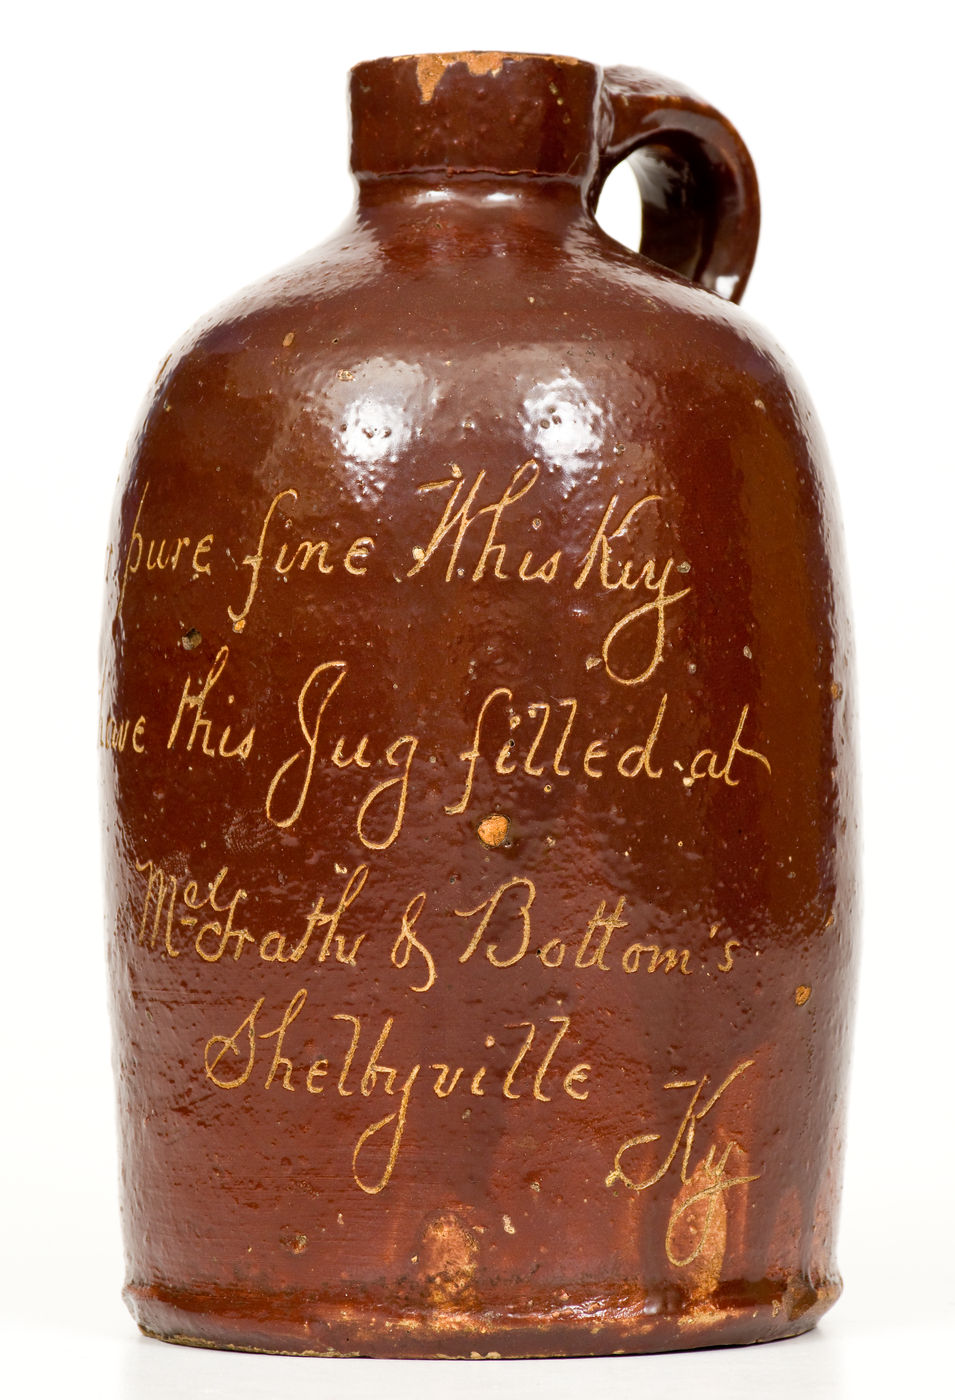 pure fine Whiskey
have this Jug filled at
McGrath & Bottom's
Shelbyville
Ky